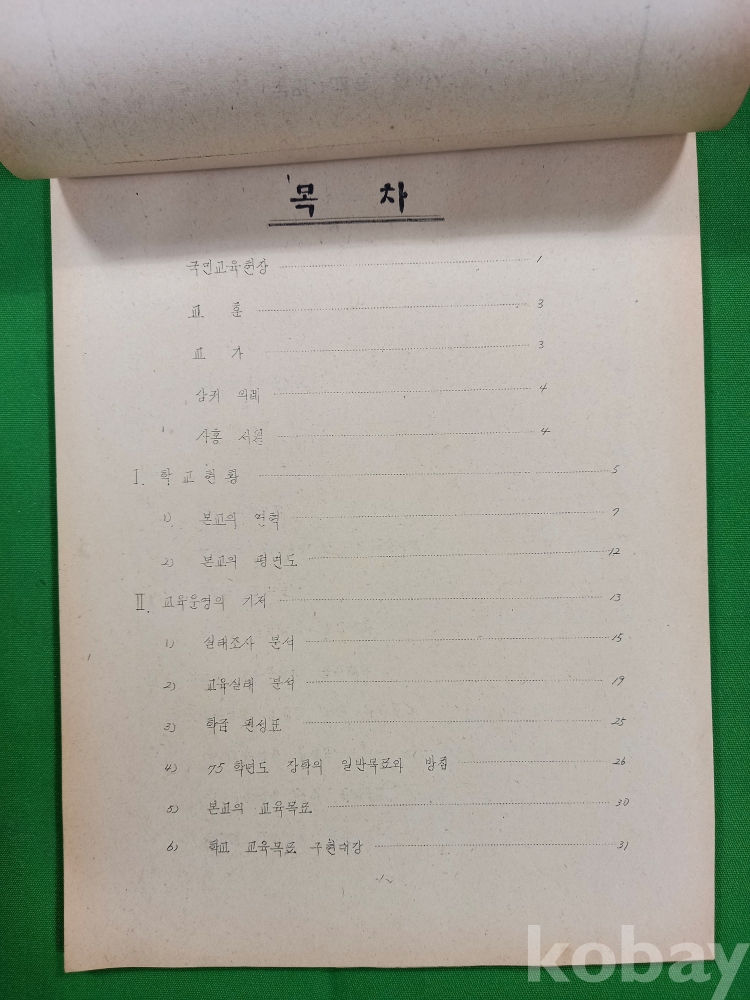 목 차
국민교육헌장 1
교 훈 3
교 가 3
삼귀 의례 4
사홍 서원 4
I. 학교현황 5
1) 본교의 연혁 7
2) 본교의 평면도 12
II. 교육운영의 기저 13
1) 실태조사 분석 15
2) 교육실태 분석 19
3) 학급 편성표 25
4) 75학년도 장학의 일반목표와 방침 26
5) 본교의 교육목표 30
6) 학교 교육목표 구현대강 31
-1-
kobay